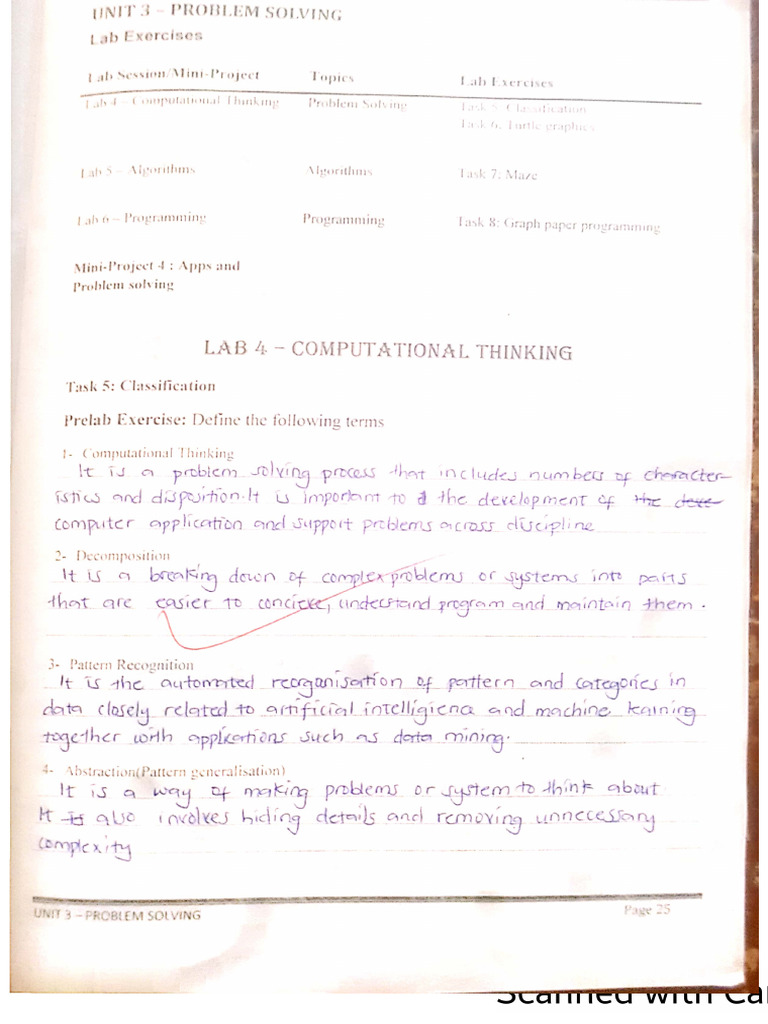 UNIT 3 – PROBLEM SOLVING
Lab Exercises
Lab Session/Mini-Project Topics Lab Exercises
Lab 4 – Computational Thinking Problem Solving Task 5: Classification
Task 6: Turtle graphics
Lab 5 – Algorithms Algorithms Task 7: Maze
Lab 6 – Programming Programming Task 8: Graph paper programming
Mini-Project 4 : Apps and
Problem solving
LAB 4 – COMPUTATIONAL THINKING
Task 5: Classification
Prelab Exercise: Define the following terms
1- Computational Thinking
It is a problem solving process that includes numbers of character-
istics and disposition. It is important to the development of the deve
computer application and support problems across discipline
2- Decomposition
It is a breaking down of complex problems or systems into parts
that are easier to concieve, understand program and maintain them.
3- Pattern Recognition
It is the automated reorganisation of pattern and categories in
data closely related to artificial intelligience and machine learning
together with applications such as data mining.
4- Abstraction(Pattern generalisation)
It is a way of making problems or system to think about
It is also involves hiding details and removing unnecessary
complexity
UNIT 3 – PROBLEM SOLVING Page 25
Scanned with